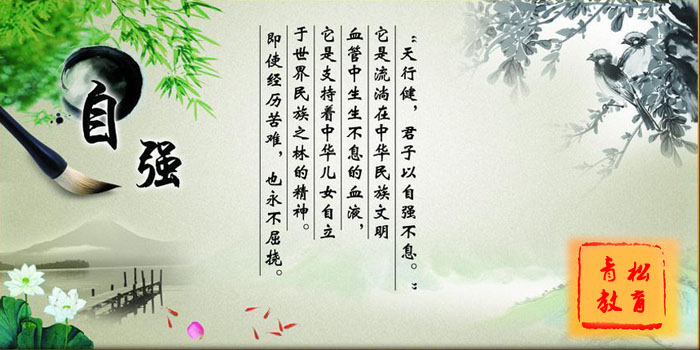 自强
“天行健，君子以自强不息。”
它是流淌在中华民族文明
血管中生生不息的血液，
它是支持着中华儿女自立
于世界民族之林的精神。
即使经历苦难，也永不屈挠。
青松
教育